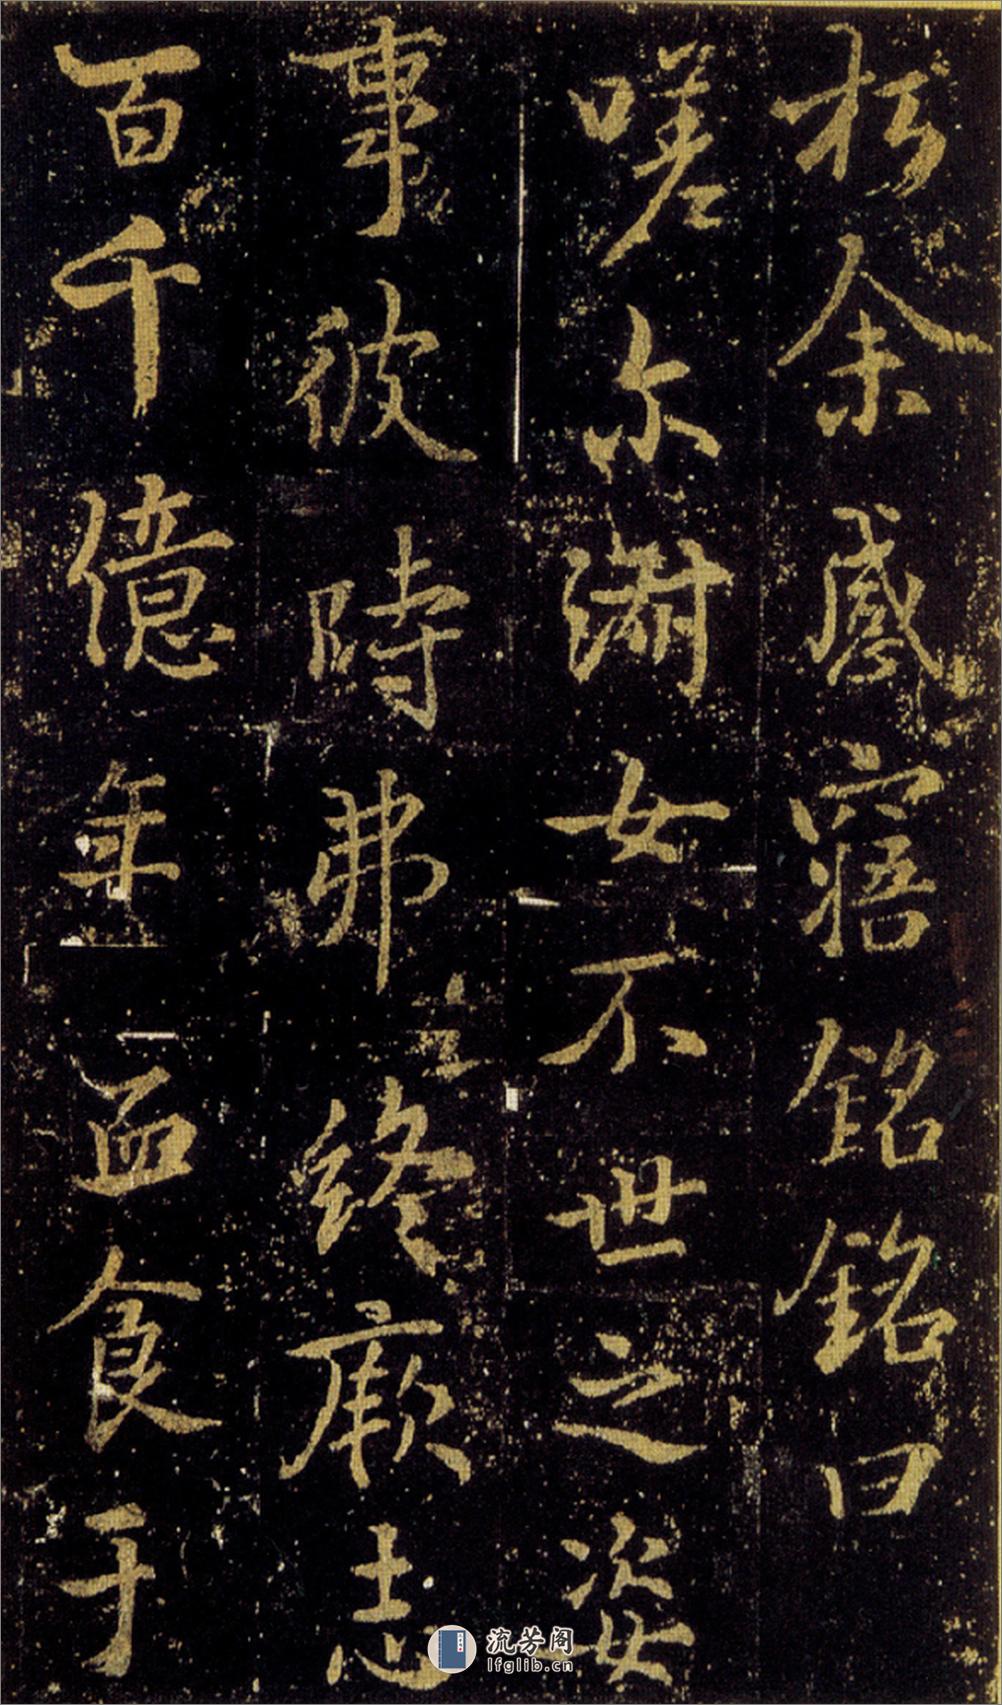 於余感寤銘銘曰
嗟尔淑女不世之姿
事彼時弗終厥志
百千億年血食于
流芳阁
lfglib.cn